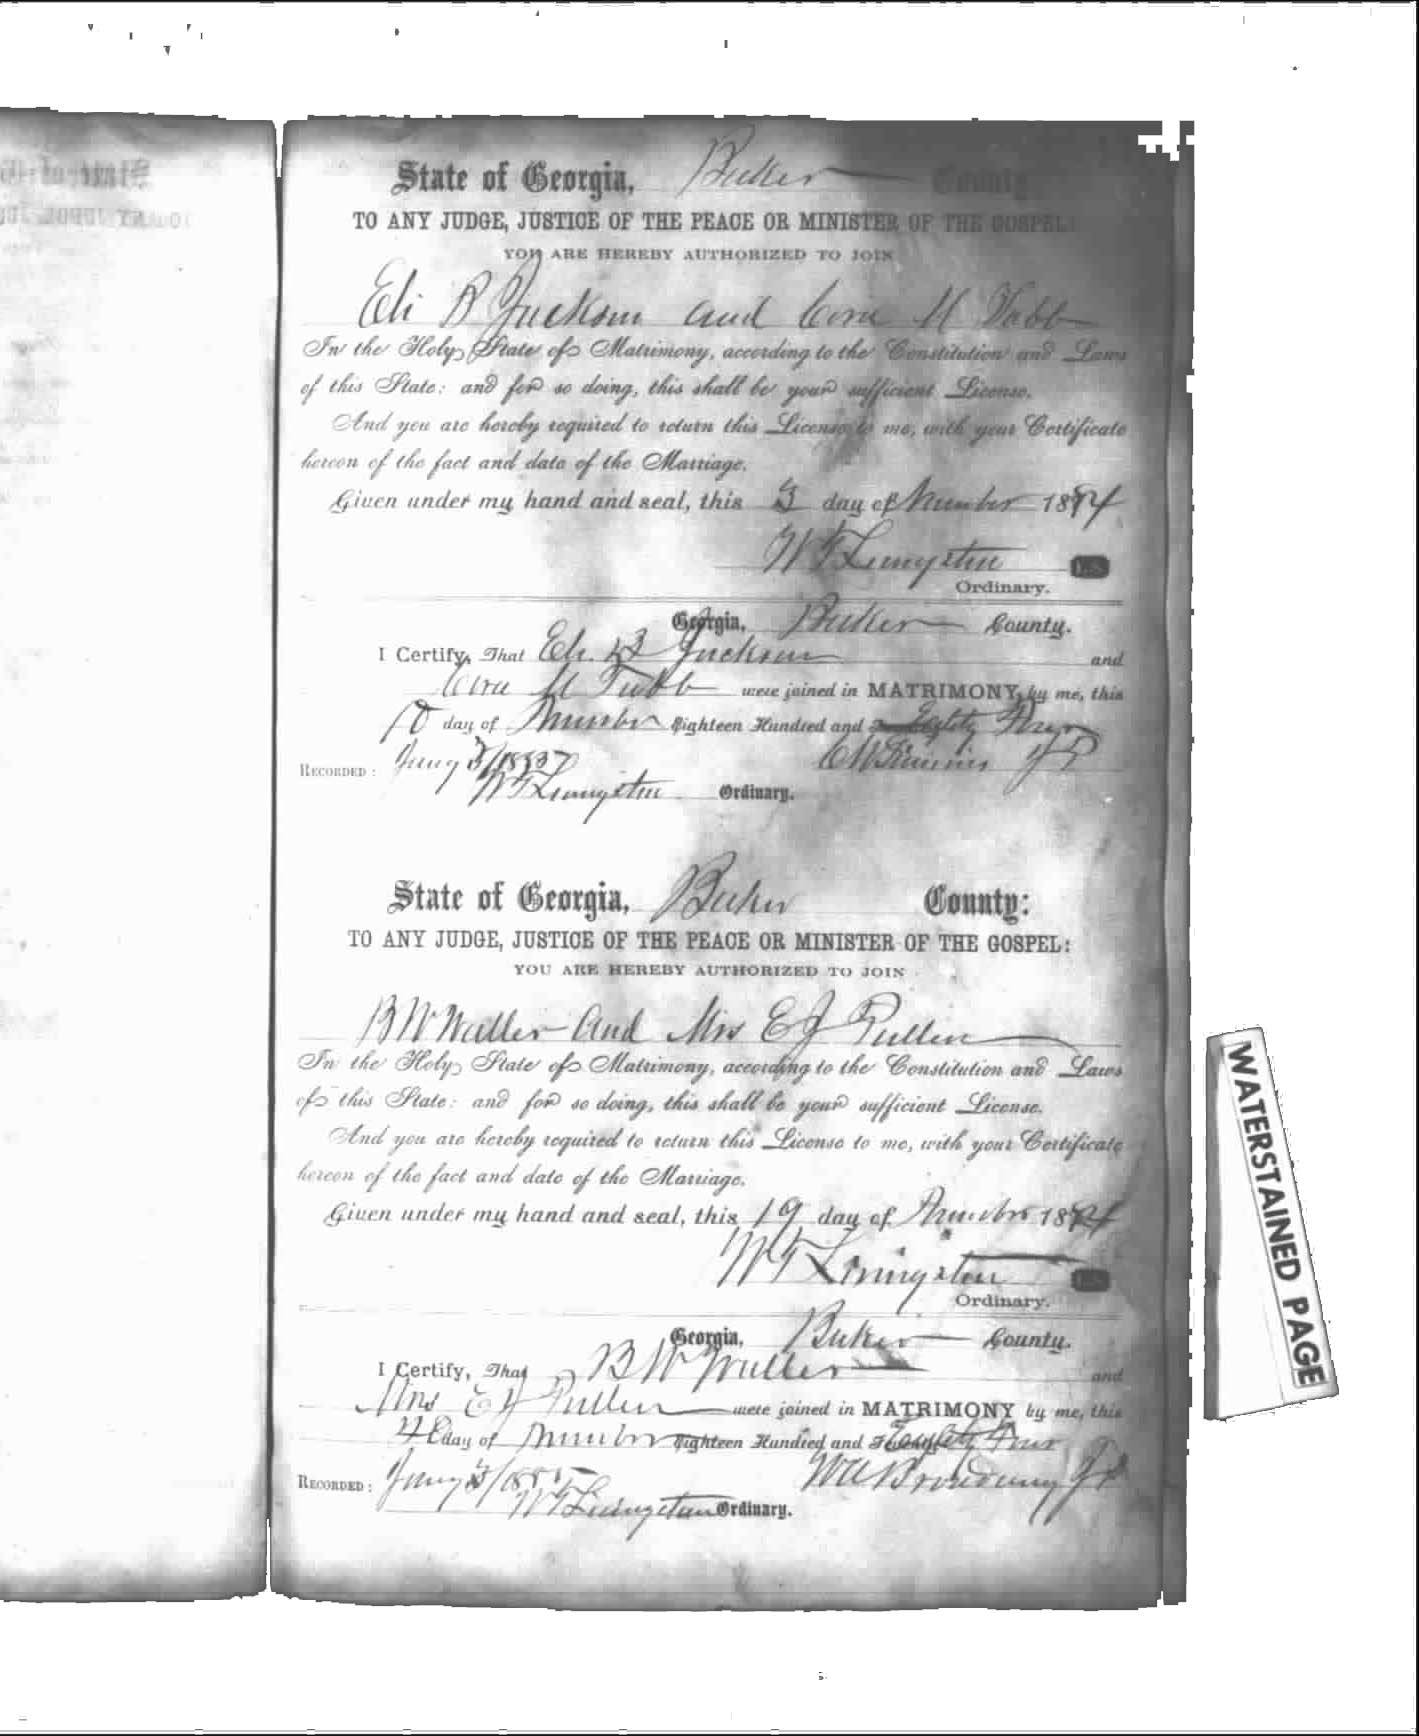 State of Georgia, Baker County
TO ANY JUDGE, JUSTICE OF THE PEACE OR MINISTER OF THE GOSPEL:
YOU ARE HEREBY AUTHORIZED TO JOIN
Eli B Jackson and Cora M Tabb
In the Holy State of Matrimony, according to the Constitution and Laws
of this State: and for so doing, this shall be your sufficient License.
And you are hereby required to return this License to me, with your Certificate
hereon of the fact and date of the Marriage.
Given under my hand and seal, this 3 day of November 1884
W F Livingston L.S.
Ordinary.
Georgia, Baker County.
I Certify, That Eli B Jackson and
Cora M Tabb were joined in MATRIMONY, by me, this
day of November Eighteen Hundred and Eighty Four
C W Timmins JP
RECORDED: Jany 3/1885
W F Livingston Ordinary.
State of Georgia, Baker County:
TO ANY JUDGE, JUSTICE OF THE PEACE OR MINISTER OF THE GOSPEL:
YOU ARE HEREBY AUTHORIZED TO JOIN
B W Waller and Mrs E J Pullen
In the Holy State of Matrimony, according to the Constitution and Laws
of this State: and for so doing, this shall be your sufficient License.
And you are hereby required to return this License to me, with your Certificate
hereon of the fact and date of the Marriage.
Given under my hand and seal, this 19 day of November 1884
W F Livingston L.S.
Ordinary.
Georgia, Baker County.
I Certify, That B W Waller and
Mrs E J Pullen were joined in MATRIMONY by me, this
day of November Eighteen Hundred and Eighty Four
RECORDED: Jany 3/1885 JP
W F Livingston Ordinary.
WATERSTAINED PAGE